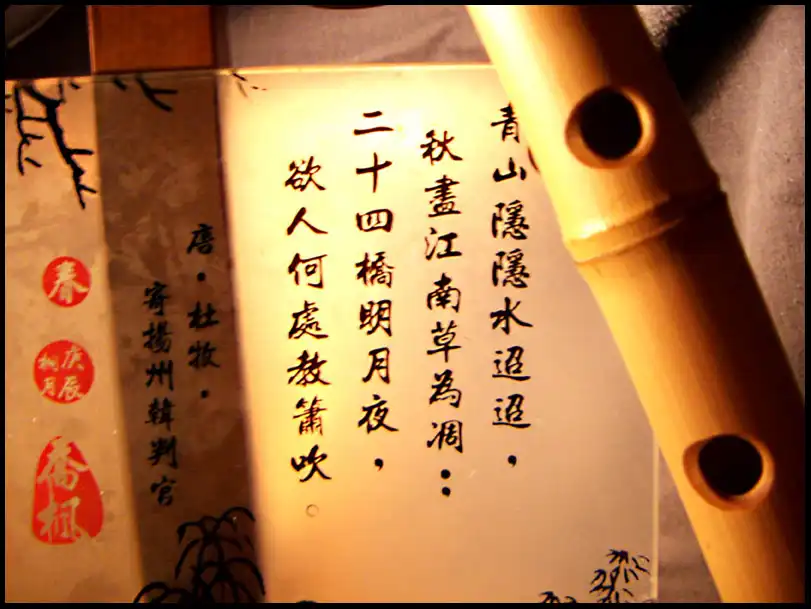 青山隱隱水迢迢，
秋盡江南草為凋：
二十四橋明月夜，
欲人何處教簫吹。
唐·杜牧·
寄揚州韓判官
春
庚辰
桐月
喬楓